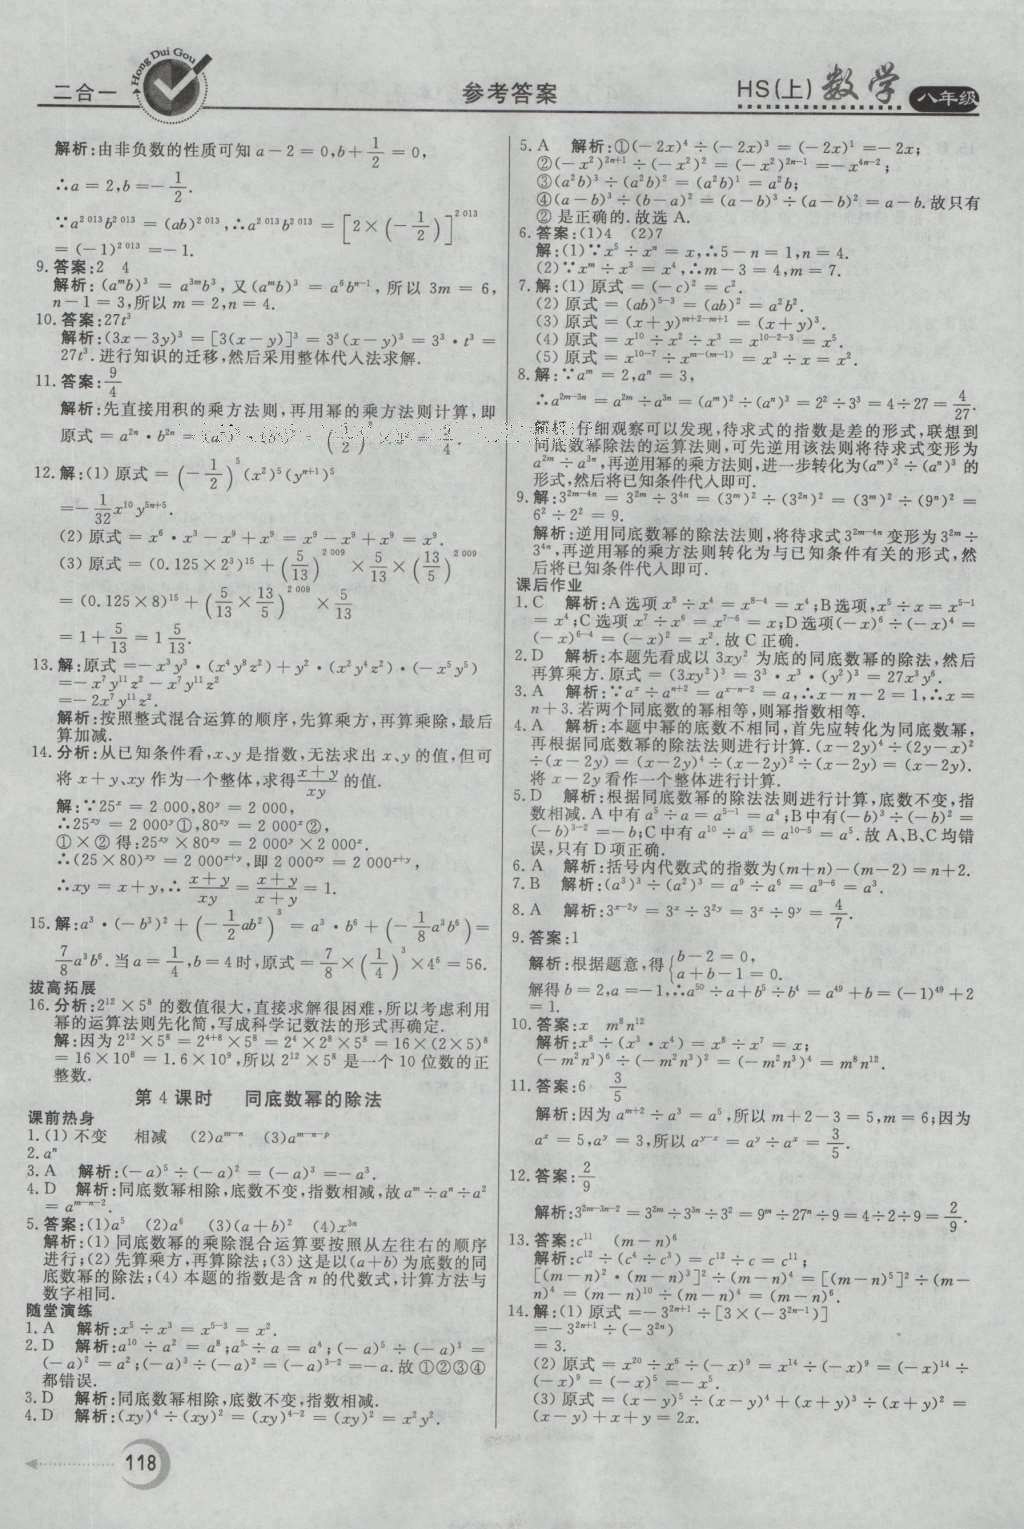 Hong Dui Gou
二合一
参考答案
HS(上) 数学 八年级
解析:由非负数的性质可知 a-2=0,b+1/2=0,
∴a=2,b=-1/2.
∵a^2 013 b^2 013=(ab)^2 013,∴a^2 013 b^2 013=[2×(-1/2)]^2 013
=(-1)^2 013=-1.
9.答案:2 4
解析:(a^m b)^3=a^3m b^3,又(a^m b)^3=a^6 b^(n-1),所以 3m=6,
n-1=3,所以 m=2,n=4.
10.答案:27t^3
解析:(3x-3y)^3=[3(x-y)]^3=3^3(x-y)^3=3^3·t^3=
27t^3.进行知识的迁移,然后采用整体代入法求解.
11.答案:9/4
解析:先直接用积的乘方法则,再用幂的乘方法则计算,即
原式=a^2n·b^2n=
12.解:(1)原式=(-1/2)^5(x^2)^5(y^(n+1))^5
=-1/32 x^10 y^(5n+5).
(2)原式=x^6·x^3-x^9+x^9=x^9-x^9+x^9=x^9.
(3)原式=(0.125×2^3)^15+(5/13)^2 009×5/13×(13/5)^2 009
=(0.125×8)^15+(5/13×13/5)^2 009×5/13
=1+5/13=1 5/13.
13.解:原式=-x^3y^3·(x^4y^8z^2)+y^2·(x^2y^4z^2)·(-x^5y^5)
=-x^7y^11z^2-x^7y^11z^2
=-2x^7y^11z^2.
解析:按照整式混合运算的顺序,先算乘方,再算乘除,最后
算加减.
14.分析:从已知条件看,x、y 是指数,无法求出 x、y 的值,但可
将 x+y、xy 作为一个整体,求得(x+y)/xy的值.
解:∵25^x=2 000,80^y=2 000,
∴25^xy=2 000^y①,80^xy=2 000^x②,
①×②得:25^xy×80^xy=2 000^y×2 000^x.
∴(25×80)^xy=2 000^(x+y),即 2 000^xy=2 000^(x+y),
∴xy=x+y,∴(x+y)/xy=(x+y)/(x+y)=1.
15.解:a^3·(-b^3)^2+(-1/2 ab^2)^3=a^3·b^6+(-1/8 a^3b^6)=
7/8 a^3b^6.当 a=1/4,b=4 时,原式=7/8×(1/4)^3×4^6=56.
拔高拓展
16.分析:2^12×5^8 的数值很大,直接求解很困难,所以考虑利用
幂的运算法则先化简,写成科学记数法的形式再确定.
解:因为 2^12×5^8=2^(4+8)×5^8=2^4×2^8×5^8=16×(2×5)^8
=16×10^8=1.6×10^9,所以 2^12×5^8 是一个 10 位数的正
整数.
第 4 课时 同底数幂的除法
课前热身
1.(1)不变 相减 (2)a^(m-n) (3)a^(m-n-p)
2.a^n
3.A 解析:(-a)^5÷(-a)^2=(-a)^3=-a^3.
4.D 解析:同底数幂相除,底数不变,指数相减,故 a^m÷a^n÷a^2
=a^(m-n-2).
5.答案:(1)a^5 (2)a^6 (3)(a+b)^2 (4)x^3n
解析:(1)同底数幂的乘除混合运算要按照从左往右的顺序
进行;(2)先算乘方,再算除法;(3)这是以(a+b)为底数的同
底数幂的除法;(4)本题的指数是含 n 的代数式,计算方法与
数字相同.
随堂演练
1.A 解析:x^5÷x^3=x^(5-3)=x^2.
2.D 解析:a^10÷a^2=a^8;a^5÷a=a^4;(-a)^5÷(-a)^3=
(-a)^2=a^2;(-a)^3÷(-a)^2=(-a)^(3-2)=-a.故①②③④
都错误.
3.D 解析:同底数幂相除,底数不变,指数相减.
4.D 解析:(xy)^4÷(xy)^2=(xy)^(4-2)=(xy)^2=x^2y^2.
5.A 解析:①(-2x)^4÷(-2x)^3=(-2x)^1=-2x;
②(-x^2)^(2n+1)÷(-x^2)^2=(-x^2)^(2n-1)=-x^(4n-2);
③(a^2b)^3÷(a^2b)^2=(a^2b)^1=a^2b;
④(a-b)^3÷(b-a)^2=(a-b)^3÷(a-b)^2=a-b.故只有
②是正确的.故选 A.
6.答案:(1)4 (2)7
解:(1)∵x^5÷x^n=x,∴5-n=1,n=4.
(2)∵x^m÷x^3=x^4,∴m-3=4,m=7.
7.解:(1)原式=(-c)^2=c^2.
(2)原式=(ab)^(5-3)=(ab)^2=a^2b^2.
(3)原式=(x+y)^(m+2-m+1)=(x+y)^3.
(4)原式=x^10÷x^2÷x^3=x^(10-2-3)=x^5.
(5)原式=x^(10-7)÷x^(m-(m-1))=x^3÷x=x^2.
8.解:∵a^m=2,a^n=3,
∴a^(2m-3n)=a^2m÷a^3n=(a^m)^2÷(a^n)^3=2^2÷3^3=4÷27=4/27.
解析:仔细观察可以发现,待求式的指数是差的形式,联想到
同底数幂除法的运算法则,可先逆用该法则将待求式变形为
a^2m÷a^3n,再逆用幂的乘方法则,进一步转化为(a^m)^2÷(a^n)^3 的
形式,然后将已知条件代入即可.
9.解:3^(2m-4n)=3^2m÷3^4n=(3^m)^2÷(3^2n)^2=(3^m)^2÷(9^n)^2=
6^2÷2^2=9.
解析:逆用同底数幂的除法法则,将待求式 3^(2m-4n)变形为 3^2m÷
3^4n,再逆用幂的乘方法则转化为与已知条件有关的形式,然
后将已知条件代入即可.
课后作业
1.C 解析:A 选项 x^8÷x^4=x^(8-4)=x^4;B 选项,x^5÷x=x^(5-1)
=x^4;C 选项 x^7÷x^6=x^(7-6)=x;D 选项(-x)^6÷(-x)^4=
(-x)^(6-4)=(-x)^2=x^2.故 C 正确.
2.D 解析:本题先看成以 3xy^2 为底的同底数幂的除法,然后
再算乘方.原式=(3xy^2)^3=3^3·x^3·(y^2)^3=27x^3y^6.
3.A 解析:∵a^x÷a^(n+2)=a^(x-n-2)=a,∴x-n-2=1,∴x=
n+3.若两个同底数的幂相等,则幂指数相等.
4.A 解析:本题中幂的底数不相同,首先应转化为同底数幂,
再根据同底数幂的除法法则进行计算.(x-2y)^4÷(2y-x)^2
÷(x-2y)=(x-2y)^4÷(x-2y)^2÷(x-2y)=(x-2y).
将 x-2y 看作一个整体进行计算.
5.D 解析:根据同底数幂的除法法则进行计算,底数不变,指
数相减.A 中有 a^5÷a=a^(5-1)=a^4;B 中有(-b)^3÷(-b)^2=
(-b)^(3-2)=-b;C 中有 a^10÷a^5=a^(10-5)=a^5.故 A、B、C 均错
误,只有 D 项正确.
6.A 解析:括号内代数式的指数为(m+n)-(m-2)=n+2.
7.B 解析:(a^3)^3÷(a^2)^3=a^9÷a^6=a^(9-6)=a^3.
8.A 解析:3^(x-2y)=3^x÷3^2y=3^x÷9^y=4/7.
9.答案:1
解析:根据题意,得{b-2=0,
a+b-1=0.
解得 b=2,a=-1,∴a^50÷a+b^5÷b^4=a^49+b=(-1)^49+2
=1.
10.答案:x m^8n^12
解析:x^8÷(x^3·x^4)=x^8÷x^7=x;
(-m^2n^3)^6÷(-m^2n^3)^2=(-m^2n^3)^4=m^8n^12.
11.答案:6 3/5
解析:因为 a^(m+2)÷a^3=a^5,所以 m+2-3=5,m=6;因为
a^x=5,a^y=3,所以 a^(y-x)=a^y÷a^x=3/5.
12.答案:2/9
解析:3^(2m-3n-2)=3^2m÷3^3n÷3^2=9^m÷27^n÷9=4÷2÷9=2/9.
13.答案:c^11 (m-n)^6
解析:c^12÷(c^4÷c^3)=c^12÷c=c^11;
[(m-n)^2·(m-n)^3]^2÷(m-n)^4=[(m-n)^5]^2÷(m-
n)^4=(m-n)^10÷(m-n)^4=(m-n)^6.
14.解:(1)原式=-3^(2n+1)÷[3×(-3^(2n-1))]
=-3^(2n+1)÷(-3^2n)
=3.
(2)原式=x^20÷x^6÷(-x)^9=x^14÷(-x)^9=(-x)^14÷
(-x)^9=(-x)^5=-x^5.
(3)原式=(x-y)^5÷(x-y)^4+(x+y)^3÷(x+y)^2=
(x-y)+x+y=2x.
118